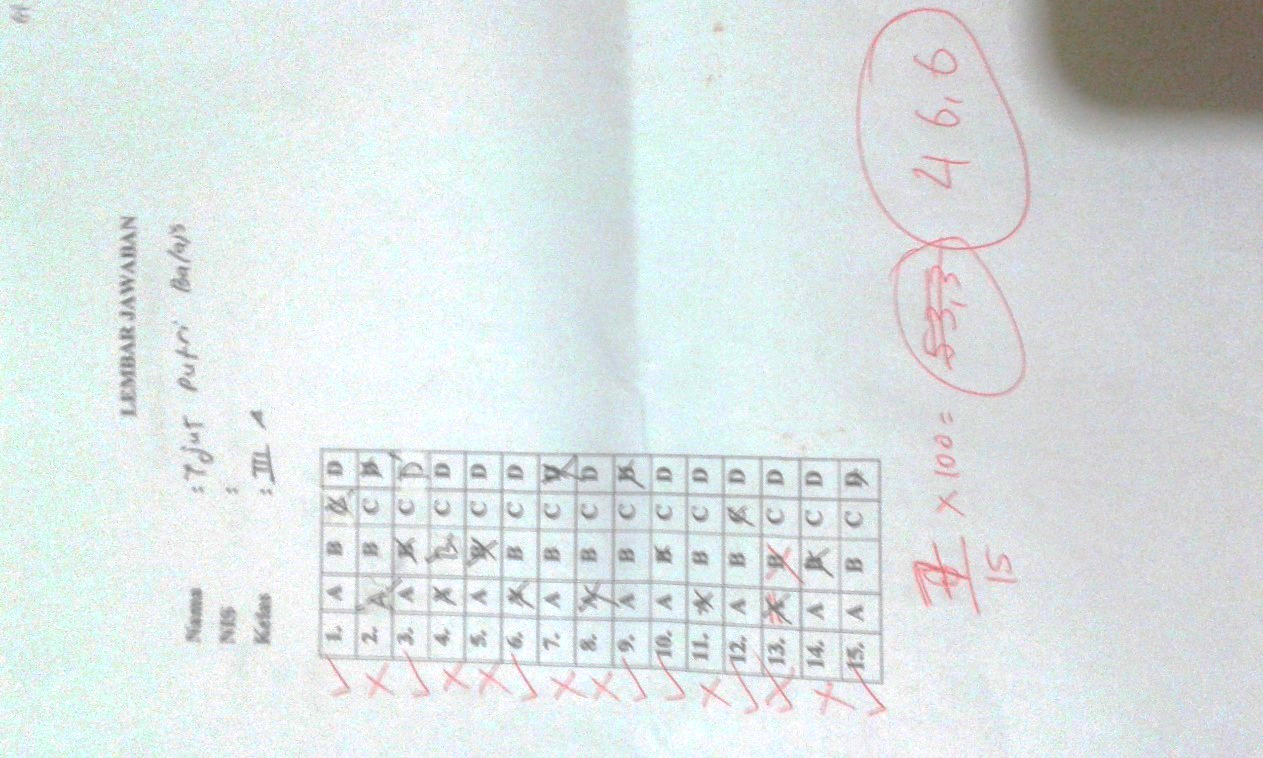 LEMBAR JAWABAN
Nama : Tjut Putri Balqis
NIS :
Kelas : III A
1. A B C D
2. A B C D
3. A B C D
4. A B C D
5. A B C D
6. A B C D
7. A B C D
8. A B C D
9. A B C D
10. A B C D
11. A B C D
12. A B C D
13. A B C D
14. A B C D
15. A B C D
7/15 x 100 = 53,3 46,6